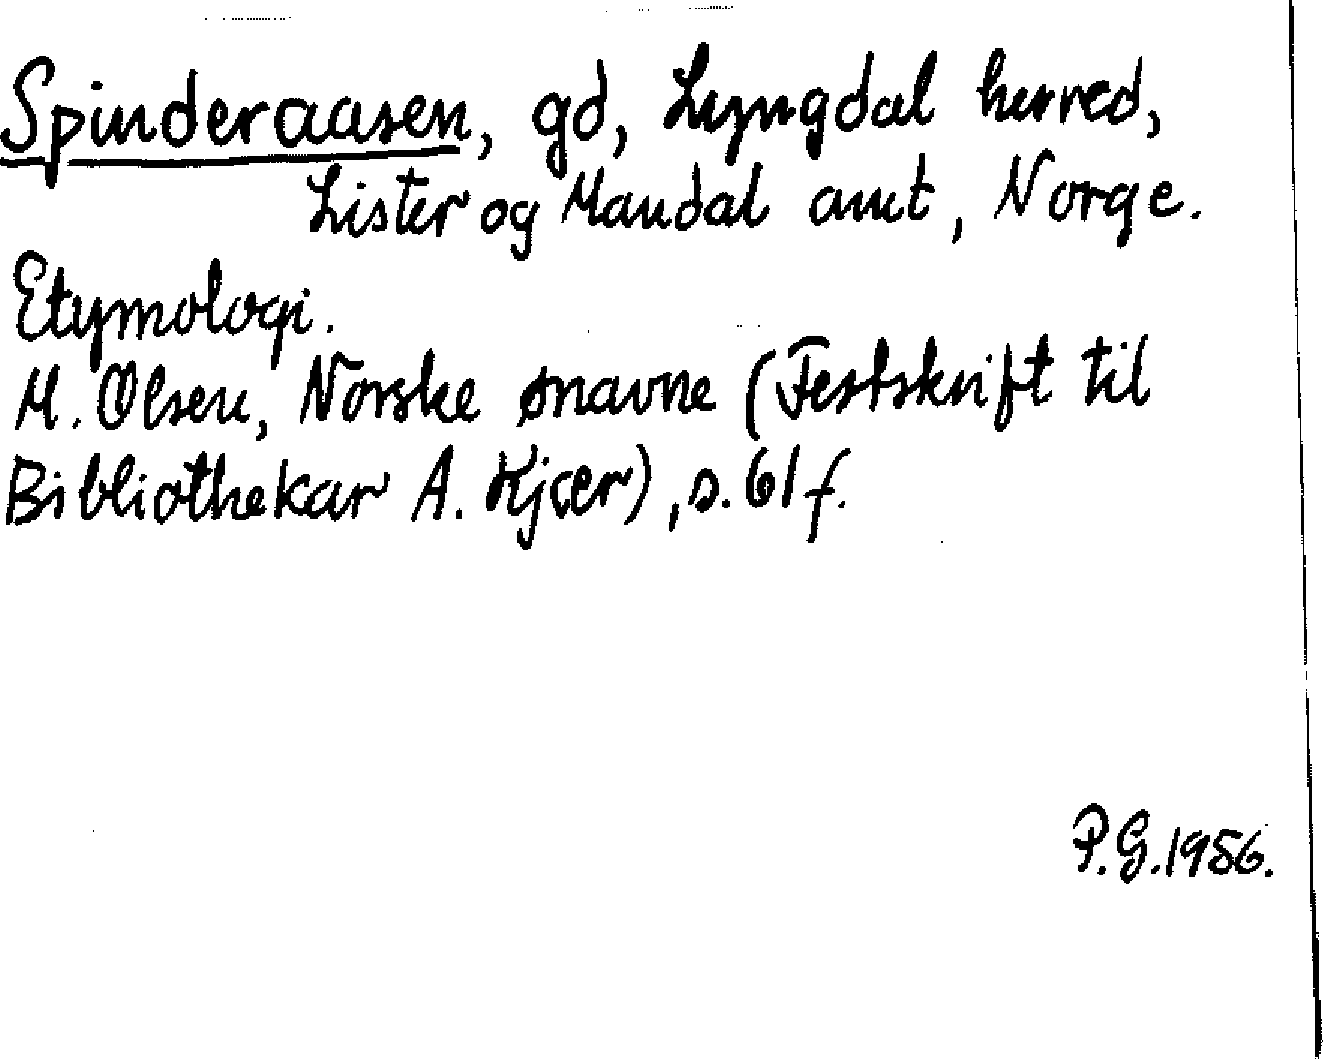 Spinderaasen, gd, Lyngdal herred,
Lister og Mandal amt, Norge.
Etymologi.
M. Olsen, Norske ønavne (Festskrift til
Bibliothekar A. Kjær), s. 61 f.
P.G. 1956.